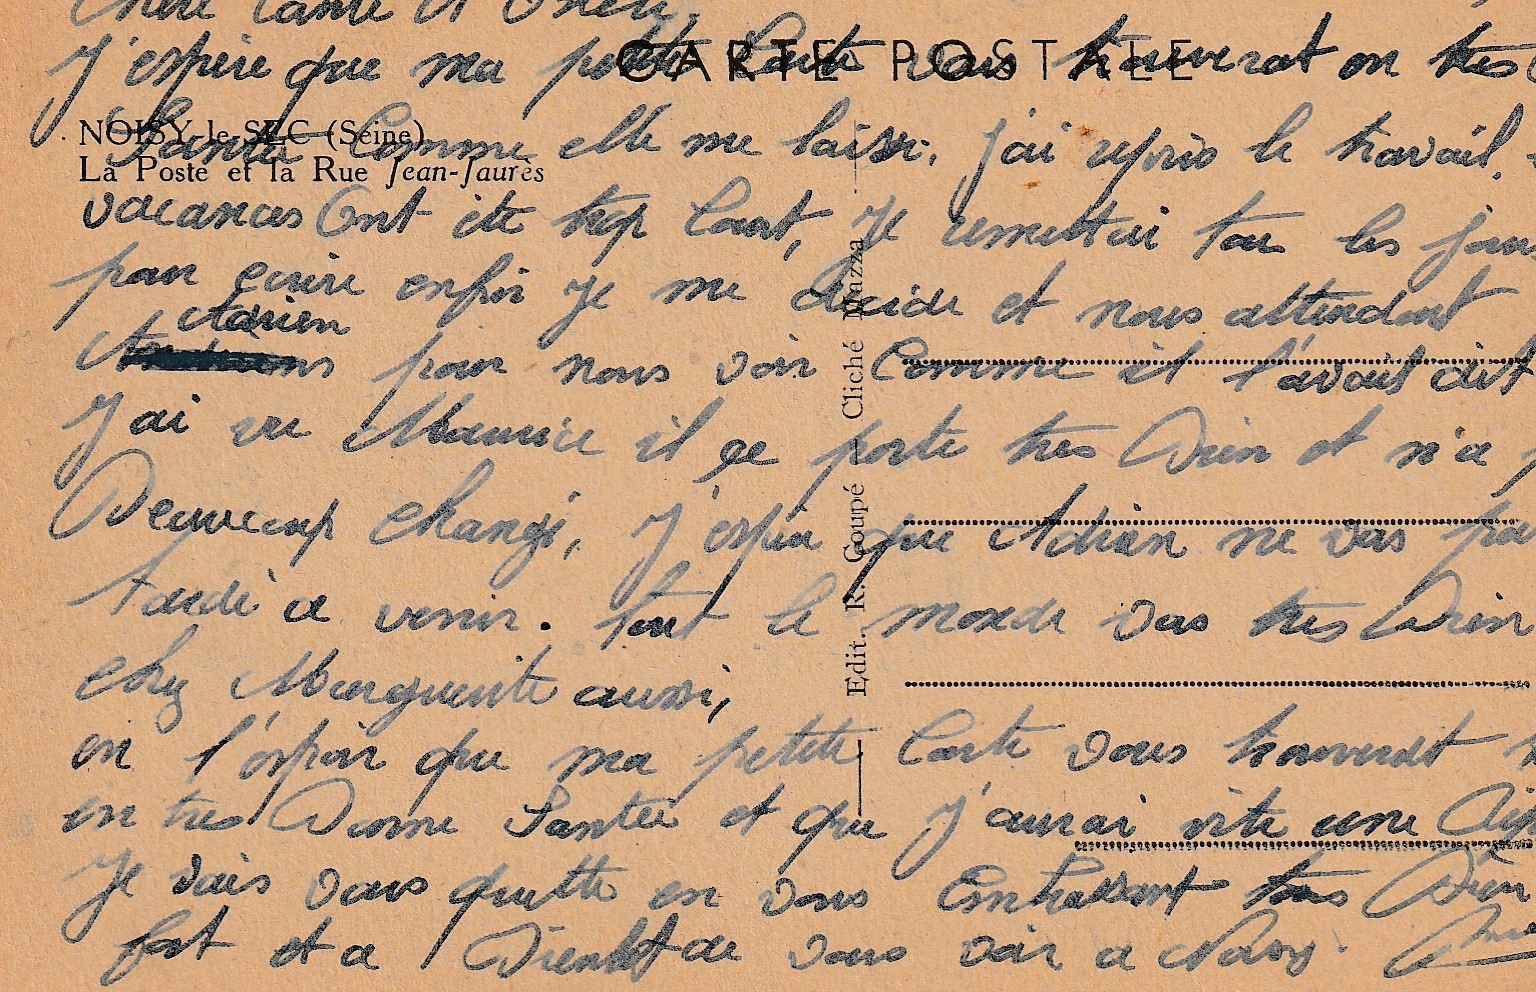 Chère tante et Oncle.
J'espère que ma petite Carte vous trouverat en tres
CARTE POSTALE
NOISY-le-SEC (Seine)
La Poste et la Rue Jean-Jaurès
Santée Comme elle me laisse. J'ai repris le travail.
vacances Ont été trop Court, Je remettai tou les jours
pour écrire enfin Je me décide et nous attendont
Adrien
pour nous voir Comme il l'avait dit
J'ai vu Maurice il ce porte tres Bien et n'a
Beaucoup changé, J'espère que Adrien ne vas pas
tardé a venir. tout le monde vas tres Bien
chez Marguerite aussi,
en l'espoir que ma petite Carte vous trouverat
en tres Bonne Santée et que J'aurai vite une
Je vais vous quitte en vous Embrassant tres Bien
fort et a Bientot de vous voir a Noisy.
Edit. R. Goupé — Cliché Mazza